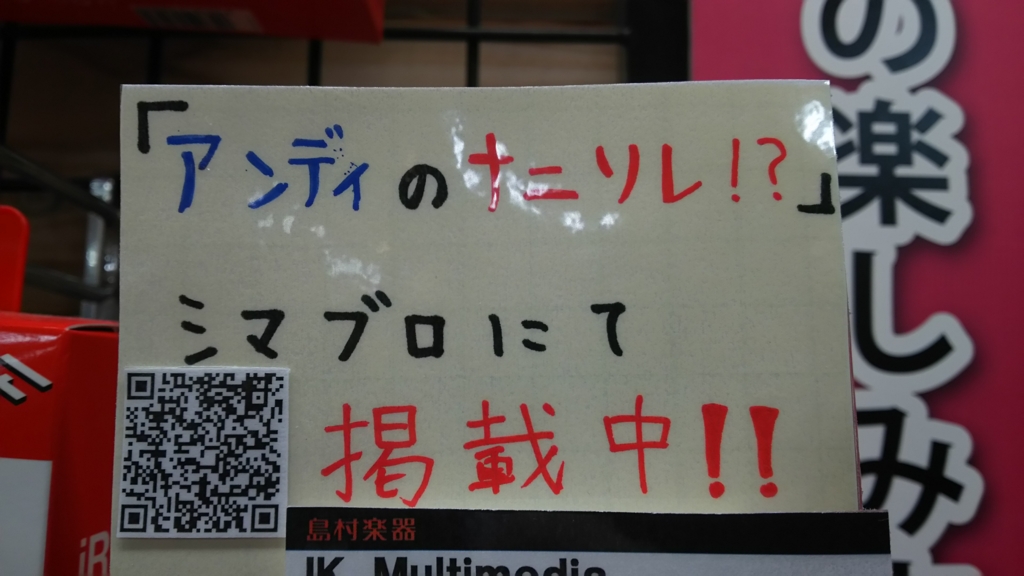 「アンディのナニソレ!?」
シマブロにて
掲載中!!
島村楽器
IK Multimedia
の楽しみ
iR